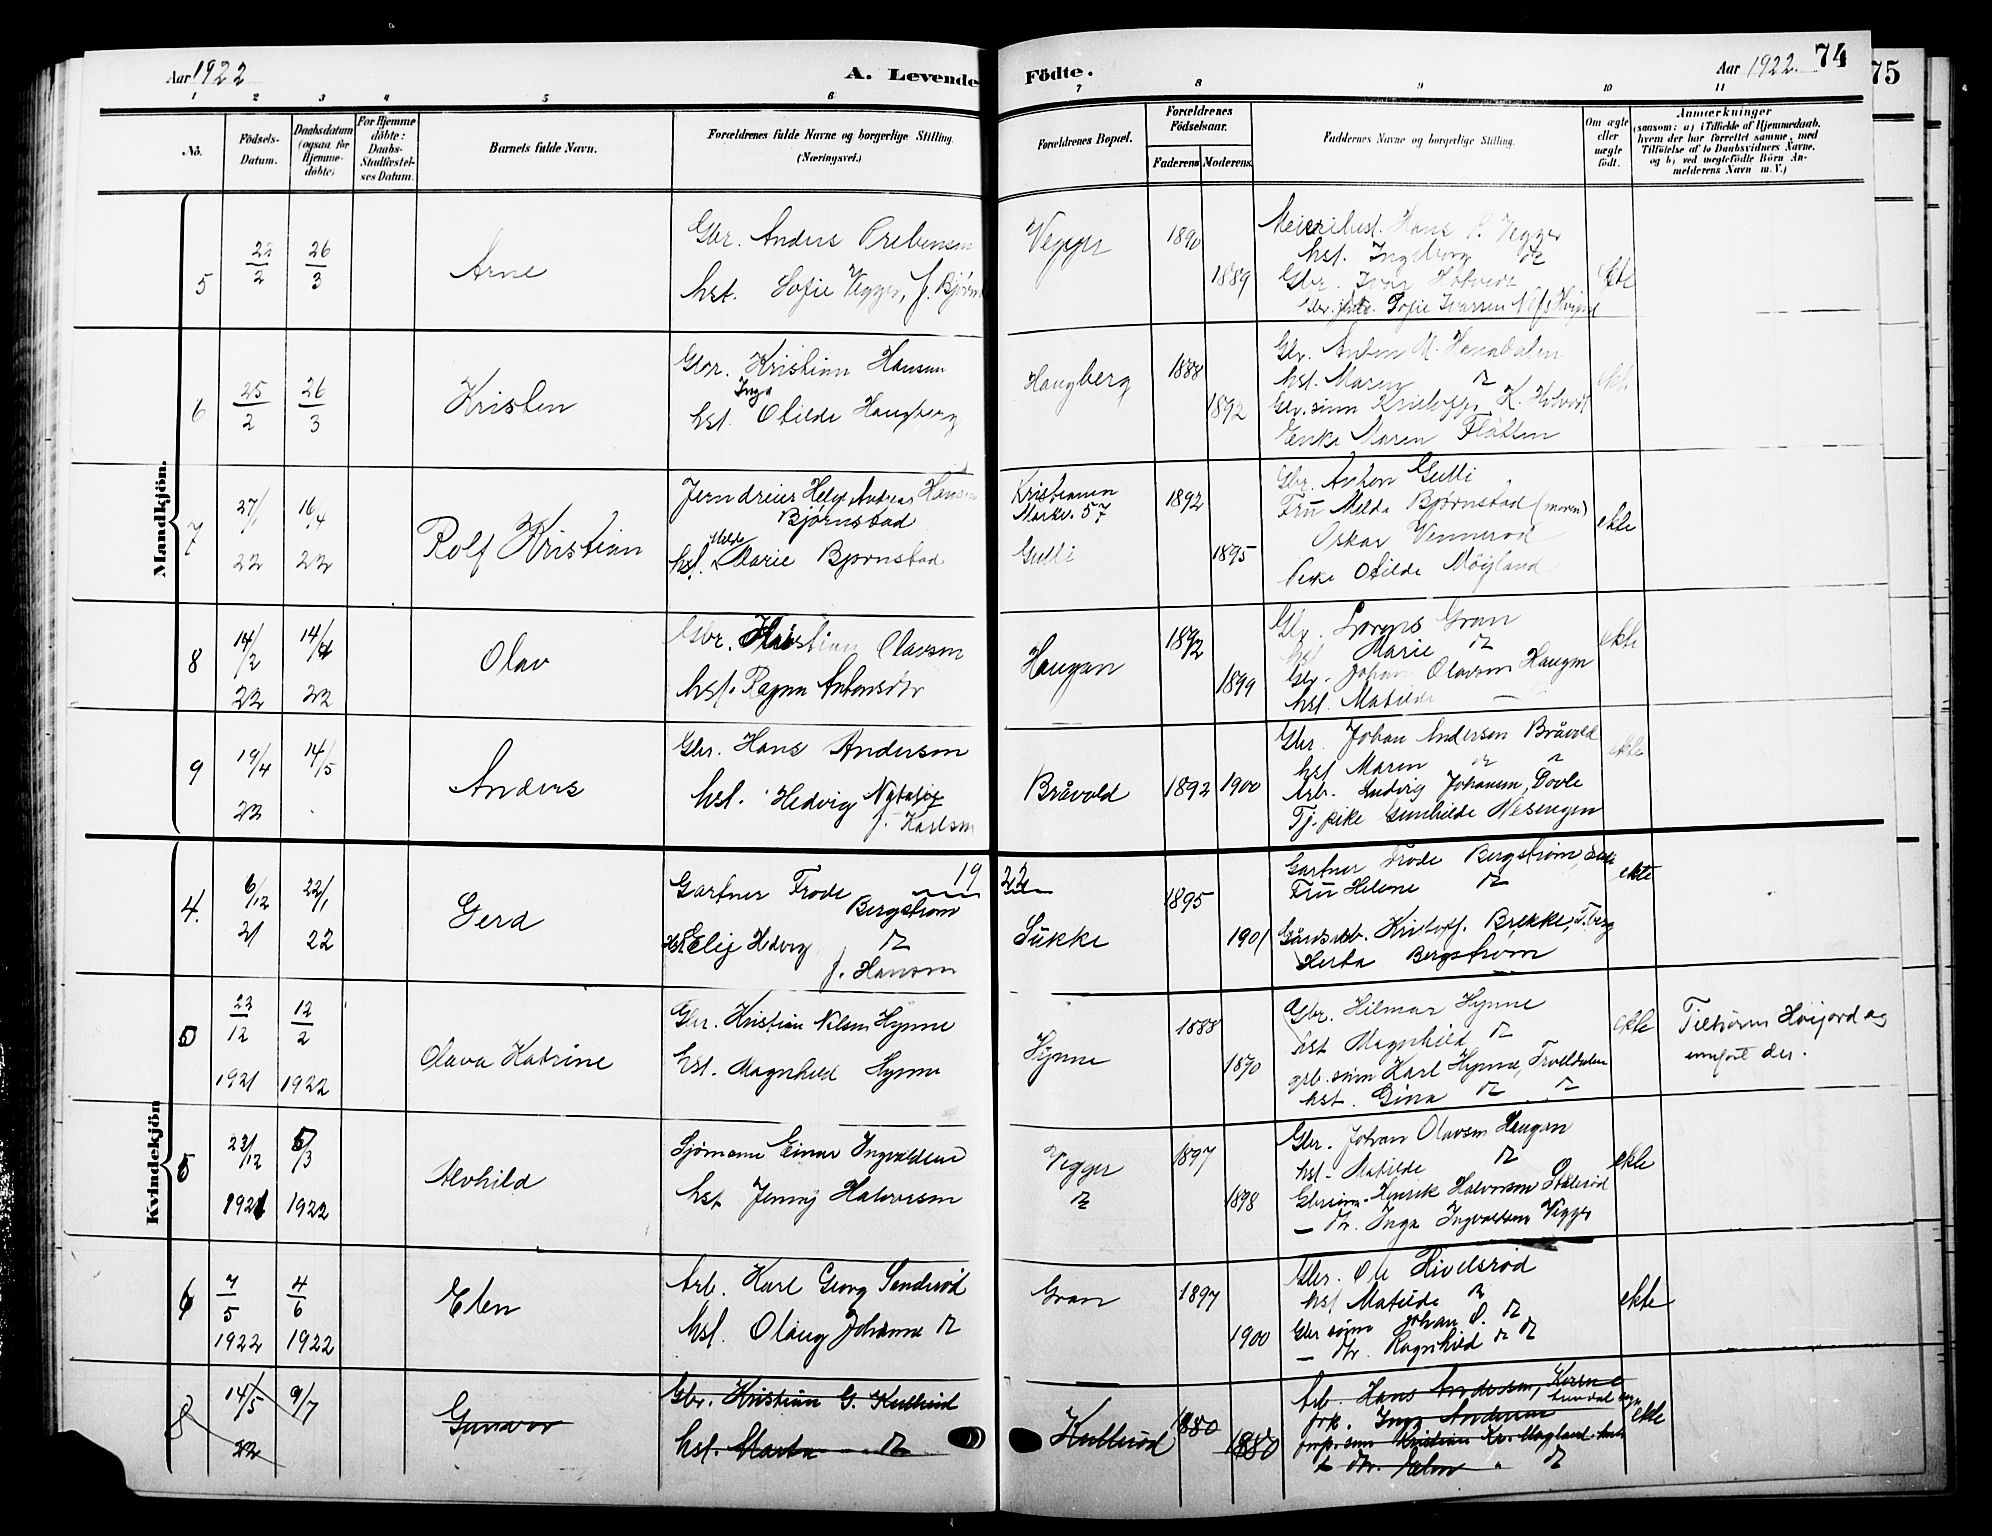 Aar 1922
A. Levende Födte.
Aar 1922.
74
75
1 2 3 4 5 6 7 8 9 10 11
No.
Födsels-Datum.
Daabsdatum (ogsaa for Hjemme-döbte)
For Hjemme döbte: Daabs-Stadfæstel-ses Datum.
Barnets fulde Navn.
Forældrenes fulde Navne og borgerlige Stilling.
(Næringsvei.)
Forældrenes Bopæl.
Forældrenes Födselsaar.
Faderens. Moderens.
Faddernes Navne og borgerlige Stilling.
Om ægte eller uægte født.
Anmærkninger
(saasom: a) i Tilfælde af Hjemmedaab.
hvem der har forrettet samme, med
Tilföielse af to Daabsvidners Navne.
og b) ved uægtefödte Börn An-
melderens Navn m. V.)
Mandkjön.
5 22/2 26/3 Arne
Gbr. Anders Prebensen
hst. Sofie Vegger, f. Bjørn
Vegger 1890 1889
Meieribest. Hans P. Vegger
hst. Ingeborg do
Gbr. Ivar Hotvedt
Sofie Ivarsen
ekte
6 25/2 26/3 Kristen
Gbr. Kristian Hansen
Inga
hst. Otilde Haugberg
Haugberg 1888 1892
Gbr. Anton H. Hanedalen
hst. Maren do
Gbr. sønn Kristoffer K. Hotvedt
Enke Maren Flåtten
ekte
7 27/1 22 16/4 22 Rolf Kristian
Jerndreier Helge Andreas Hansen
Bjørnstad
Milda
hst. Marie Bjørnstad
Kristianen
Markv. 57
Gulli
1892 1895
Gbr. Anton Gulli
Fru Milda Bjørnstad (moren)
Oskar Vennerød
Pike Otilde Møyland
ekte
8 14/2 22 14/4 22 Olav
Gbr. Kristian Olavsen
hst. Ragna Antonsdtr
Haugan 1892 1899
Gbr. Lorens Gran
hst Marie do
Gbr. Johan Olavsen Haugan
hst. Matilde —
ekte
9 19/4 22 14/5 Anders
Gbr. Hans Andersen
hst. Hedvig Natalie
f. Karlsen
Bråvold 1892 1900
Gbr. Johan Andersen Bråvold
hst Maren do do
Arb. Ludvig Johansen, Dovle
Tj. pike Gunhilde Nesengen
ekte
1922
Kvindekjön
4. 6/12 21 22/1 22 Gerd
Gartner Frode Bergstrøm
hst. Elig Hedvig do
f. Hansen
Sukke 1895 1901
Gartner Frode Bergstrøm, Sukke
Fru Helene do
Gårdsarb. Kristoff. Brekke, T.berg
Herta Bergstrøm
ekte
5 23/12 1921 12/2 1922 Olava Katrine
Gbr. Kristian Nilsen Hynne
hst. Magnhild Hynne
Hynne 1888 1890
Gbr. Hilmar Hynne
hst Magnhild do
gbr. sønn Karl Hynne, Trolldalen
hst. Gina do do
ekte
Tilhører Høijord og
innført der.
5 23/12 1921 5/3 1922 Alvhild
Sjømann Einar Ingvaldsen
hst Jenny Halvorsen
Vegger
do
1897 1898
Gbr. Johan Olavsen Haugan
hst. Matilde do
Gbrsønn Henrik Halvorsen Stålerød
— dtr. Inga Ingvaldsen Vegger
ekte
6 7/5 1922 4/6 1922 Elen
Arb. Karl Georg Sanderød
hst. Olaug Johanne do
Gran 1897 1900
Gbr. Ole Rivelsrød
hst Matilde do
Gbr sønn Johan O. do
— dtr. Ragnhild do do
ekte
8 14/5 22 9/7 Gunvor
Gbr. Kristian G. Kullerud
hst. Marta do
Kullerød 1880 1880
Arb. Hans Andersen,
frk. Inga Andersen
Kristian Kr. Møgland
dtr. Elen " do
ekte